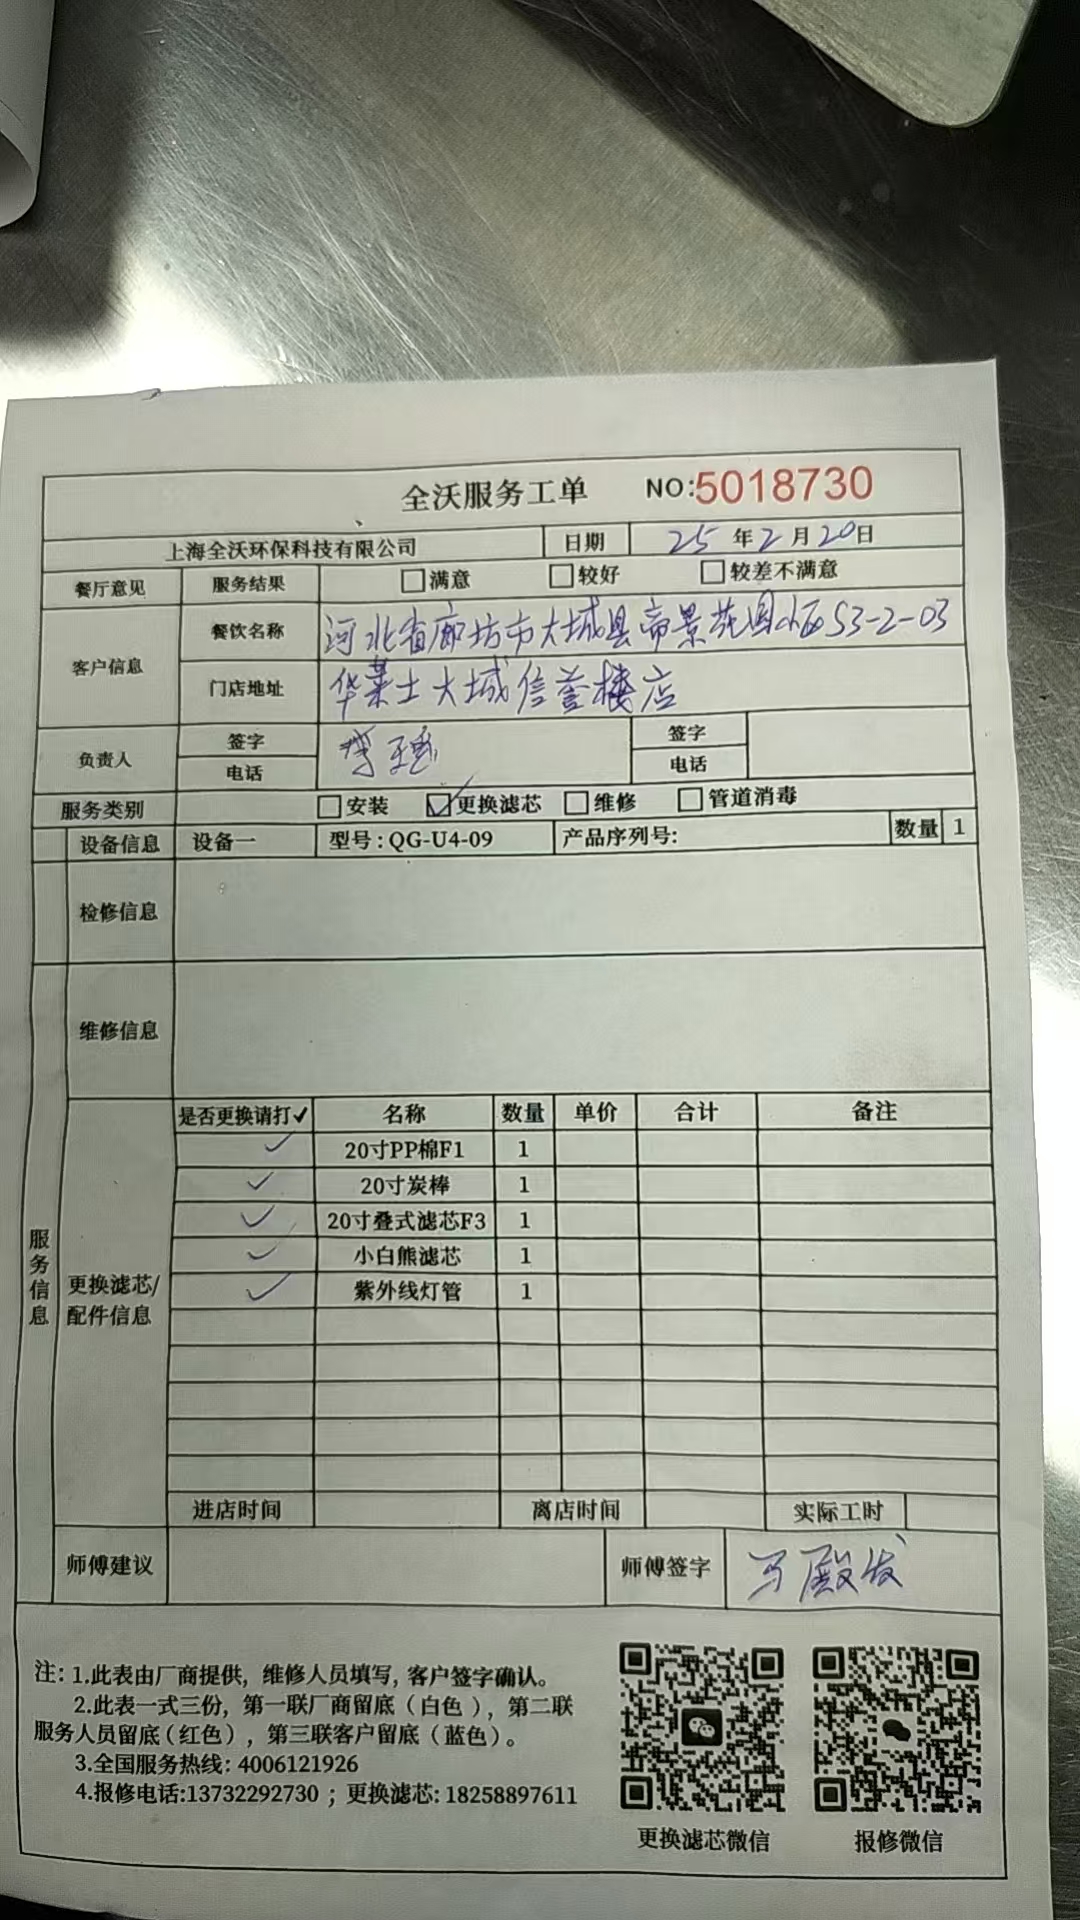 全沃服务工单 NO:5018730
上海全沃环保科技有限公司 日期 25年2月20日
餐厅意见 服务结果 满意 较好 较差不满意
客户信息 餐饮名称 河北省廊坊市大城县帝景花园小区S3-2-03
门店地址 华莱士大城信誉楼店
负责人 签字 签字
电话 电话
服务类别 安装 更换滤芯 维修 管道消毒
设备信息 设备一 型号:QG-U4-09 产品序列号: 数量 1
检修信息
维修信息
服务信息
更换滤芯/
配件信息
是否更换请打✓ 名称 数量 单价 合计 备注
✓ 20寸PP棉F1 1
✓ 20寸炭棒 1
✓ 20寸叠式滤芯F3 1
✓ 小白熊滤芯 1
✓ 紫外线灯管 1
进店时间 离店时间 实际工时
师傅建议 师傅签字 马殿发
注: 1.此表由厂商提供，维修人员填写, 客户签字确认。
2.此表一式三份，第一联厂商留底（白色），第二联
服务人员留底(红色)，第三联客户留底（蓝色）。
3.全国服务热线: 4006121926
4.报修电话:13732292730 ; 更换滤芯: 18258897611
更换滤芯微信 报修微信